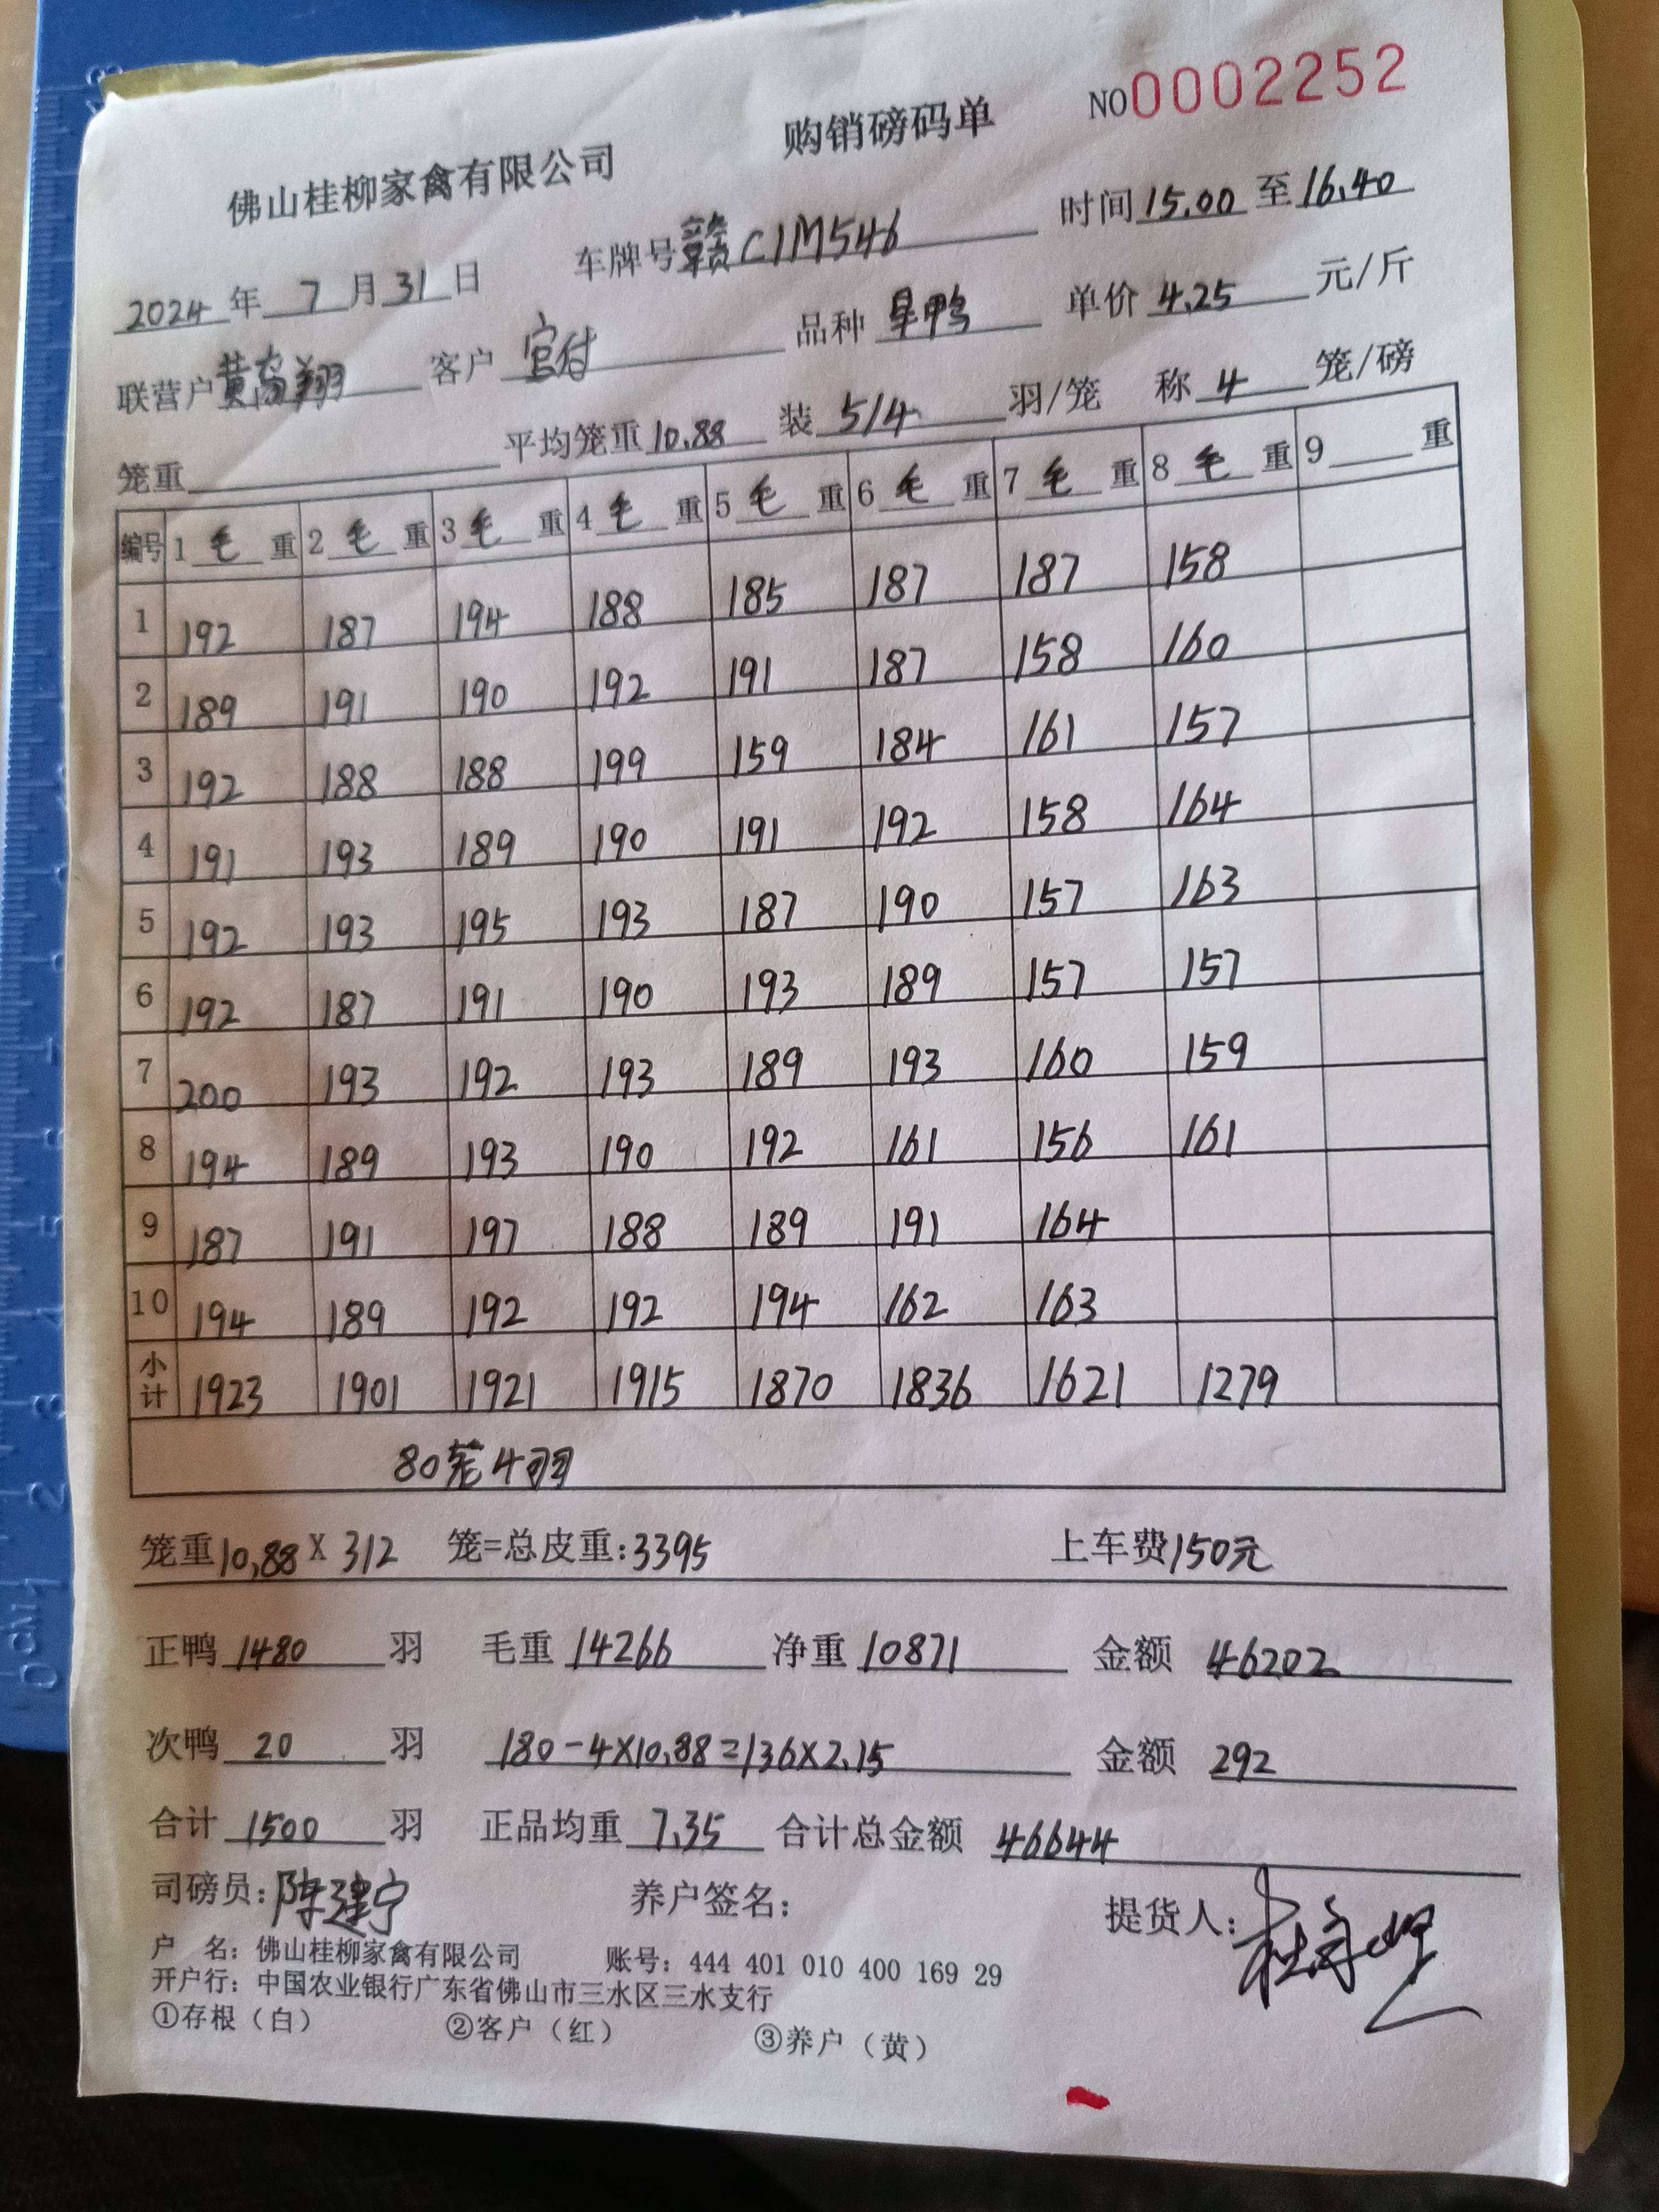 购销磅码单 NO0002252
佛山桂柳家禽有限公司
2024年 7月31日 车牌号赣C1M546 时间15.00至16.40
联营户黄高翔 客户官付 品种旱鸭 单价4.25元/斤
笼重 平均笼重10.88 装5/4羽/笼 称4笼/磅
编号 1毛重 2毛重 3毛重 4毛重 5毛重 6毛重 7毛重 8毛重 9重
1 192 187 194 188 185 187 187 158
2 189 191 190 192 191 187 158 160
3 192 188 188 199 159 184 161 157
4 191 193 189 190 191 192 158 164
5 192 193 195 193 187 190 157 163
6 192 187 191 190 193 189 157 157
7 200 193 192 193 189 193 160 159
8 194 189 193 190 192 161 156 161
9 187 191 197 188 189 191 164
10 194 189 192 192 194 162 163
小计 1923 1901 1921 1915 1870 1836 1621 1279
80笼4羽
笼重10.88X312 笼=总皮重:3395 上车费150元
正鸭1480羽 毛重14266 净重10871 金额46202
次鸭20羽 180-4×10.88=136×2.15 金额292
合计1500羽 正品均重7.35 合计总金额46644
司磅员:陈建宁 养户签名: 提货人:
户 名: 佛山桂柳家禽有限公司 账号: 444 401 010 400 169 29
开户行: 中国农业银行广东省佛山市三水区三水支行
①存根（白） ②客户（红） ③养户（黄）